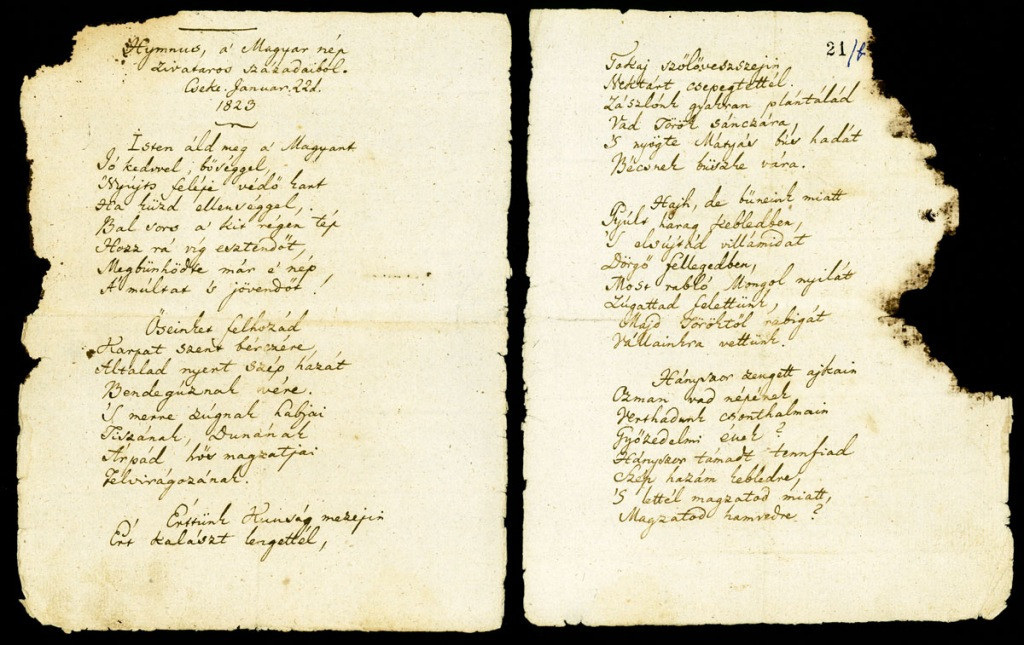 Hymnus, a' Magyar nép
zivataros századaiból.
Cseke. Januar. 22d.
1823
Isten áld meg a' Magyart
Jó kedvvel, bőséggel,
Nyújts feléje védő kart
Ha küzd ellenséggel,
Bal sors a' kit régen tép
Hozz rá víg esztendőt,
Megbűnhődte már e' nép
A' múltat 's jövendőt!
Őseinket felhozád
Kárpát szent bérczére,
Általad nyert szép hazát
Bendegúznak vére.
'S merre zúgnak habjai
Tiszának, Dunának
Árpád hős magzatjai
Felvirágozának.
Értünk Kunság mezejin
Ért kalászt lengettél,
21/b
Tokaj szőlőveszszejin
Nektárt csepegtettél.
Zászlónk gyakran plántálád
Vad Török sánczára,
'S nyögte Mátyás bús hadát
Bécsnek büszke vára.
Hajh, de bűneink miatt
Gyúlt harag kebledben,
'S elsújtád villámidat
Dörgő fellegedben,
Most rabló Mongol nyilát
Zúgattad felettünk,
Majd Töröktől rabigát
Vállainkra vettünk.
Hányszor zengett ajkain
Ozman vad népének
Vert hadunk csonthalmain
Győzedelmi ének?
Hányszor támadt tennfiad
Szép hazám kebledre,
'S lettél magzatod miatt,
Magzatod hamvedre?